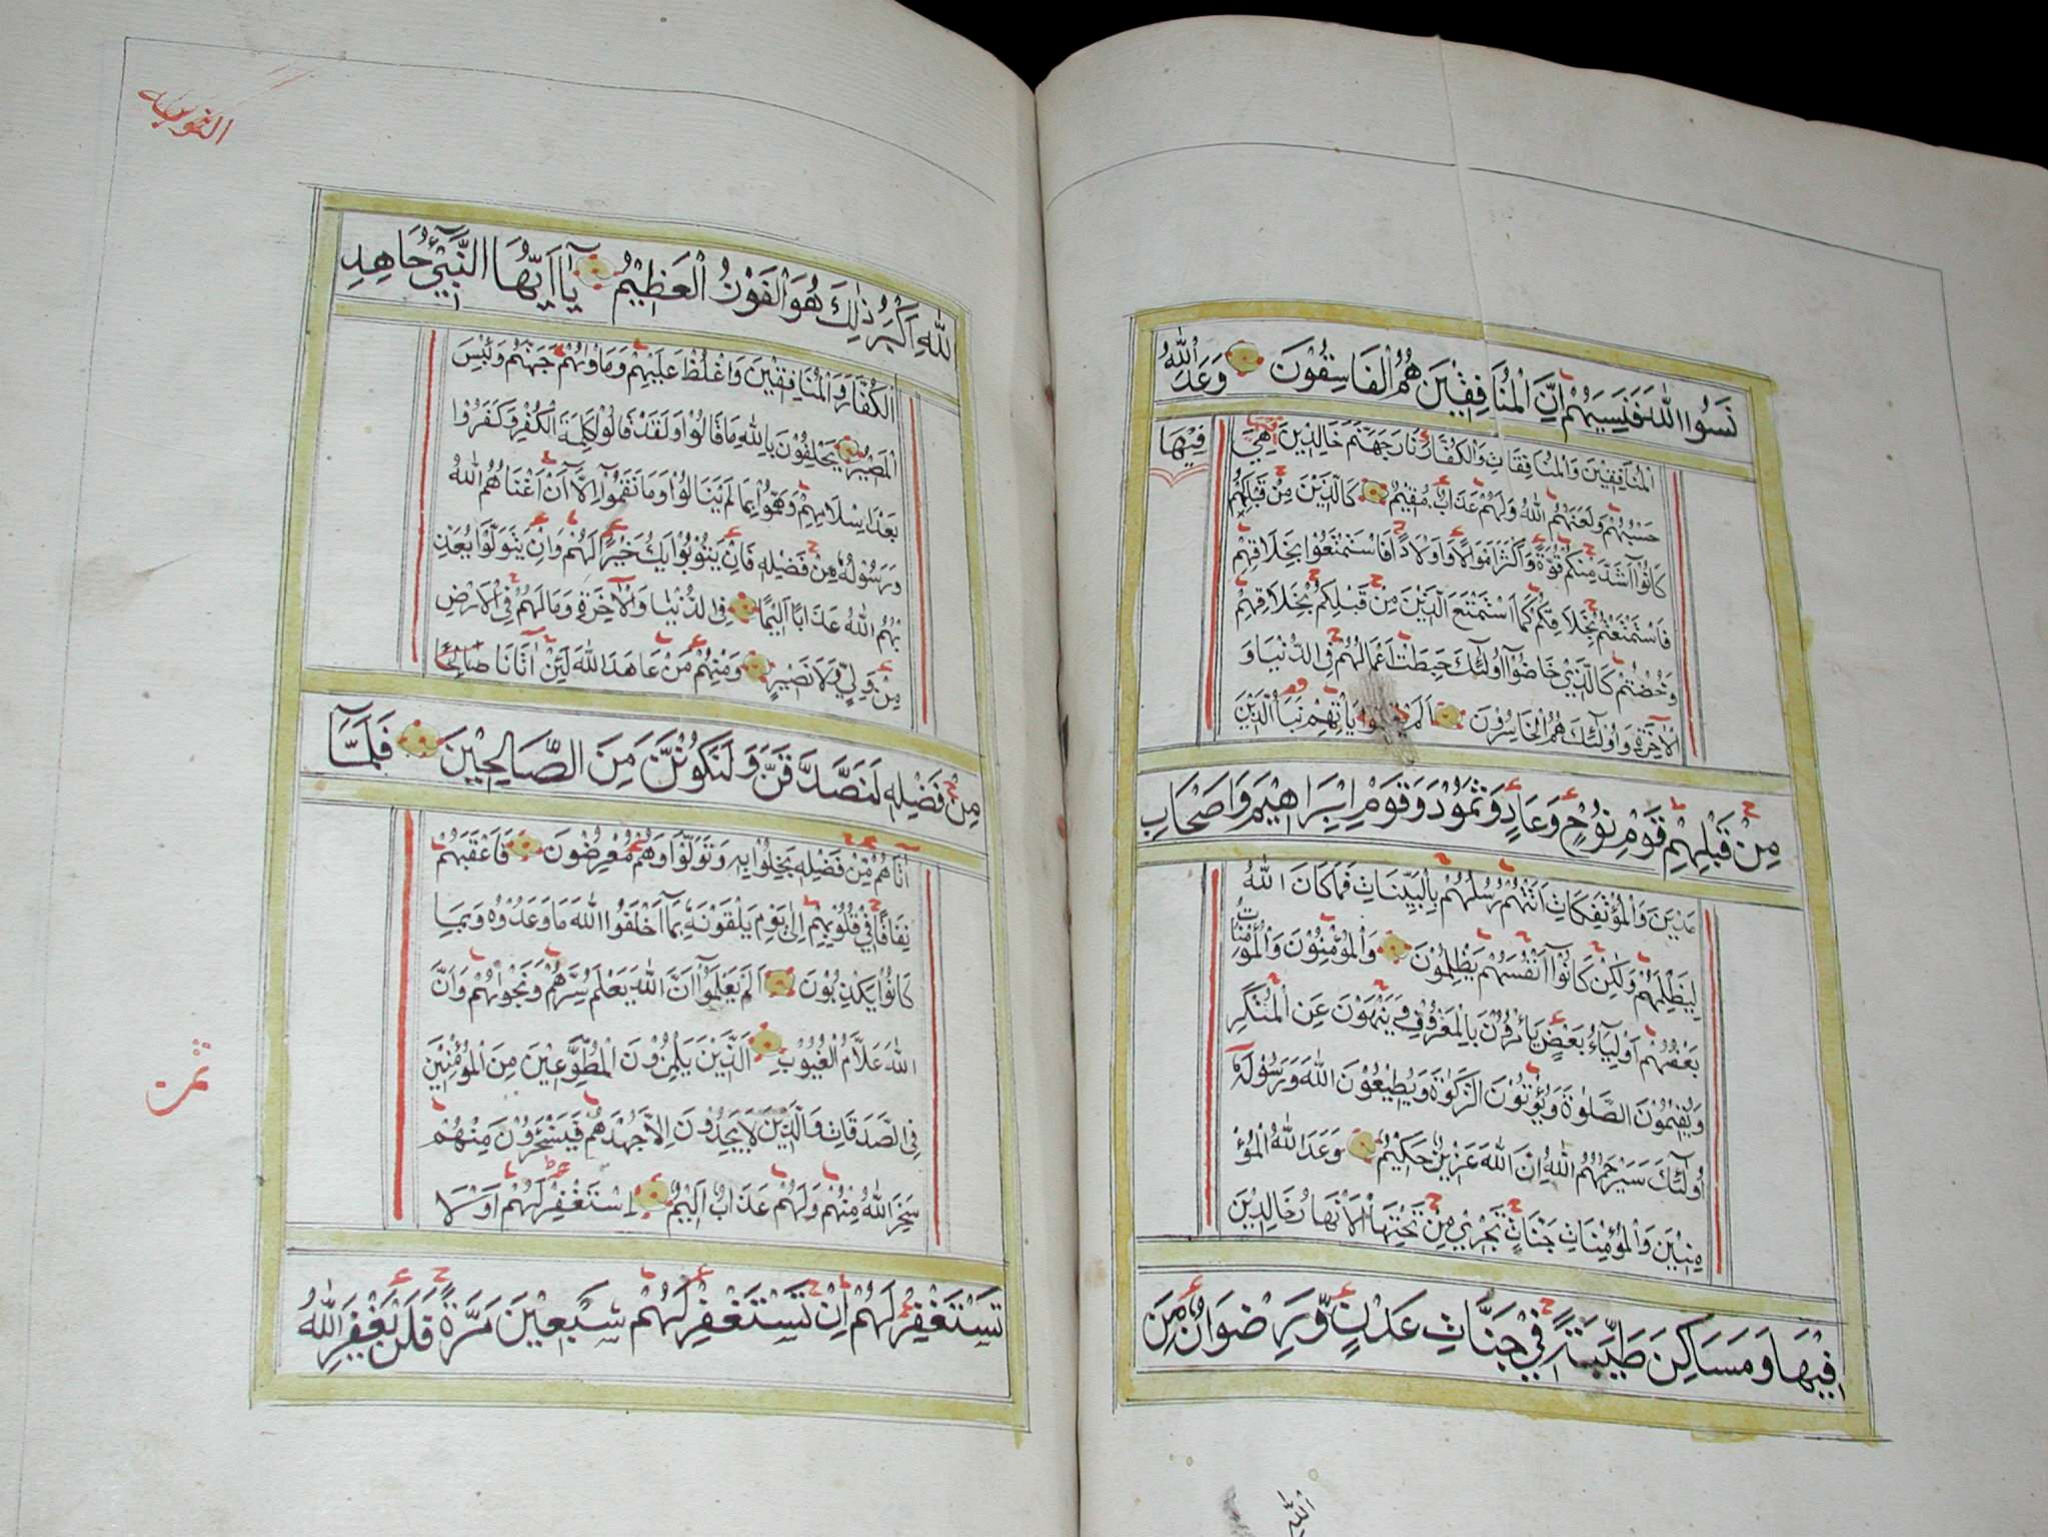 نَسُوا اللّٰهَ فَنَسِيَهُمْ اِنَّ الْمُنَافِقِيْنَ هُمُ الْفَاسِقُوْنَ وَعَدَ اللّٰهُ
الْمُنَافِقِيْنَ وَالْمُنَافِقَاتِ وَالْكُفَّارَ نَارَ جَهَنَّمَ خَالِدِيْنَ هِيَ
فِيْهَا
حَسْبُهُمْ وَلَعَنَهُمُ اللّٰهُ وَلَهُمْ عَذَابٌ مُّقِيْمٌ كَالَّذِيْنَ مِنْ قَبْلِكُمْ
كَانُوْا اَشَدَّ مِنْكُمْ قُوَّةً وَّاَكْثَرَ اَمْوَالًا وَّاَوْلَادًا فَاسْتَمْتَعُوْا بِخَلَاقِهِمْ
فَاسْتَمْتَعْتُمْ بِخَلَاقِكُمْ كَمَا اسْتَمْتَعَ الَّذِيْنَ مِنْ قَبْلِكُمْ بِخَلَاقِهِمْ
وَخُضْتُمْ كَالَّذِيْ خَاضُوْا اُولٰٓئِكَ حَبِطَتْ اَعْمَالُهُمْ فِي الدُّنْيَا وَ
الْاٰخِرَةِ وَاُولٰٓئِكَ هُمُ الْخَاسِرُوْنَ اَلَمْ يَاْتِهِمْ نَبَاُ الَّذِيْنَ
مِنْ قَبْلِهِمْ قَوْمِ نُوْحٍ وَّعَادٍ وَّثَمُوْدَ وَقَوْمِ اِبْرَاهِيْمَ وَاَصْحَابِ
مَدْيَنَ وَالْمُؤْتَفِكَاتِ اَتَتْهُمْ رُسُلُهُمْ بِالْبَيِّنَاتِ فَمَا كَانَ اللّٰهُ
لِيَظْلِمَهُمْ وَلٰكِنْ كَانُوْٓا اَنْفُسَهُمْ يَظْلِمُوْنَ وَالْمُؤْمِنُوْنَ وَالْمُؤْمِنَاتُ
بَعْضُهُمْ اَوْلِيَآءُ بَعْضٍ يَاْمُرُوْنَ بِالْمَعْرُوْفِ وَيَنْهَوْنَ عَنِ الْمُنْكَرِ
وَيُقِيْمُوْنَ الصَّلٰوةَ وَيُؤْتُوْنَ الزَّكٰوةَ وَيُطِيْعُوْنَ اللّٰهَ وَرَسُوْلَهٗ
اُولٰٓئِكَ سَيَرْحَمُهُمُ اللّٰهُ اِنَّ اللّٰهَ عَزِيْزٌ حَكِيْمٌ وَعَدَ اللّٰهُ الْمُؤْ
مِنِيْنَ وَالْمُؤْمِنَاتِ جَنَّاتٍ تَجْرِيْ مِنْ تَحْتِهَا الْاَنْهَارُ خَالِدِيْنَ
فِيْهَا وَمَسَاكِنَ طَيِّبَةً فِيْ جَنَّاتِ عَدْنٍ وَّرِضْوَانٌ مِّنَ
التوبه
للّٰهِ اَكْبَرُ ذٰلِكَ هُوَ الْفَوْزُ الْعَظِيْمُ يَآ اَيُّهَا النَّبِيُّ جَاهِدِ
الْكُفَّارَ وَالْمُنَافِقِيْنَ وَاغْلُظْ عَلَيْهِمْ وَمَاْوٰىهُمْ جَهَنَّمُ وَبِئْسَ
الْمَصِيْرُ يَحْلِفُوْنَ بِاللّٰهِ مَا قَالُوْا وَلَقَدْ قَالُوْا كَلِمَةَ الْكُفْرِ وَكَفَرُوْا
بَعْدَ اِسْلَامِهِمْ وَهَمُّوْا بِمَا لَمْ يَنَالُوْا وَمَا نَقَمُوْٓا اِلَّآ اَنْ اَغْنَاهُمُ اللّٰهُ
وَرَسُوْلُهٗ مِنْ فَضْلِهٖ فَاِنْ يَتُوْبُوْا يَكُ خَيْرًا لَهُمْ وَاِنْ يَتَوَلَّوْا يُعَذِّ
بْهُمُ اللّٰهُ عَذَابًا اَلِيْمًا فِي الدُّنْيَا وَالْاٰخِرَةِ وَمَا لَهُمْ فِي الْاَرْضِ
مِنْ وَلِيٍّ وَّلَا نَصِيْرٍ وَمِنْهُمْ مَنْ عَاهَدَ اللّٰهَ لَئِنْ اٰتَانَا صَالِحًا
مِنْ فَضْلِهٖ لَنَصَّدَّقَنَّ وَلَنَكُوْنَنَّ مِنَ الصَّالِحِيْنَ فَلَمَّآ
اٰتَاهُمْ مِّنْ فَضْلِهٖ بَخِلُوْا بِهٖ وَتَوَلَّوْا وَهُمْ مُعْرِضُوْنَ فَاَعْقَبَهُمْ
نِفَاقًا فِيْ قُلُوْبِهِمْ اِلٰى يَوْمِ يَلْقَوْنَهٗ بِمَآ اَخْلَفُوا اللّٰهَ مَا وَعَدُوْهُ وَبِمَا
كَانُوْا يَكْذِبُوْنَ اَلَمْ يَعْلَمُوْٓا اَنَّ اللّٰهَ يَعْلَمُ سِرَّهُمْ وَنَجْوٰىهُمْ وَاَنَّ
اللّٰهَ عَلَّامُ الْغُيُوْبِ اَلَّذِيْنَ يَلْمِزُوْنَ الْمُطَّوِّعِيْنَ مِنَ الْمُؤْمِنِيْنَ
فِي الصَّدَقَاتِ وَالَّذِيْنَ لَا يَجِدُوْنَ اِلَّا جُهْدَهُمْ فَيَسْخَرُوْنَ مِنْهُمْ
سَخِرَ اللّٰهُ مِنْهُمْ وَلَهُمْ عَذَابٌ اَلِيْمٌ اِسْتَغْفِرْ لَهُمْ اَوْ لَا
تَسْتَغْفِرْ لَهُمْ اِنْ تَسْتَغْفِرْ لَهُمْ سَبْعِيْنَ مَرَّةً فَلَنْ يَغْفِرَ اللّٰهُ
ثمن